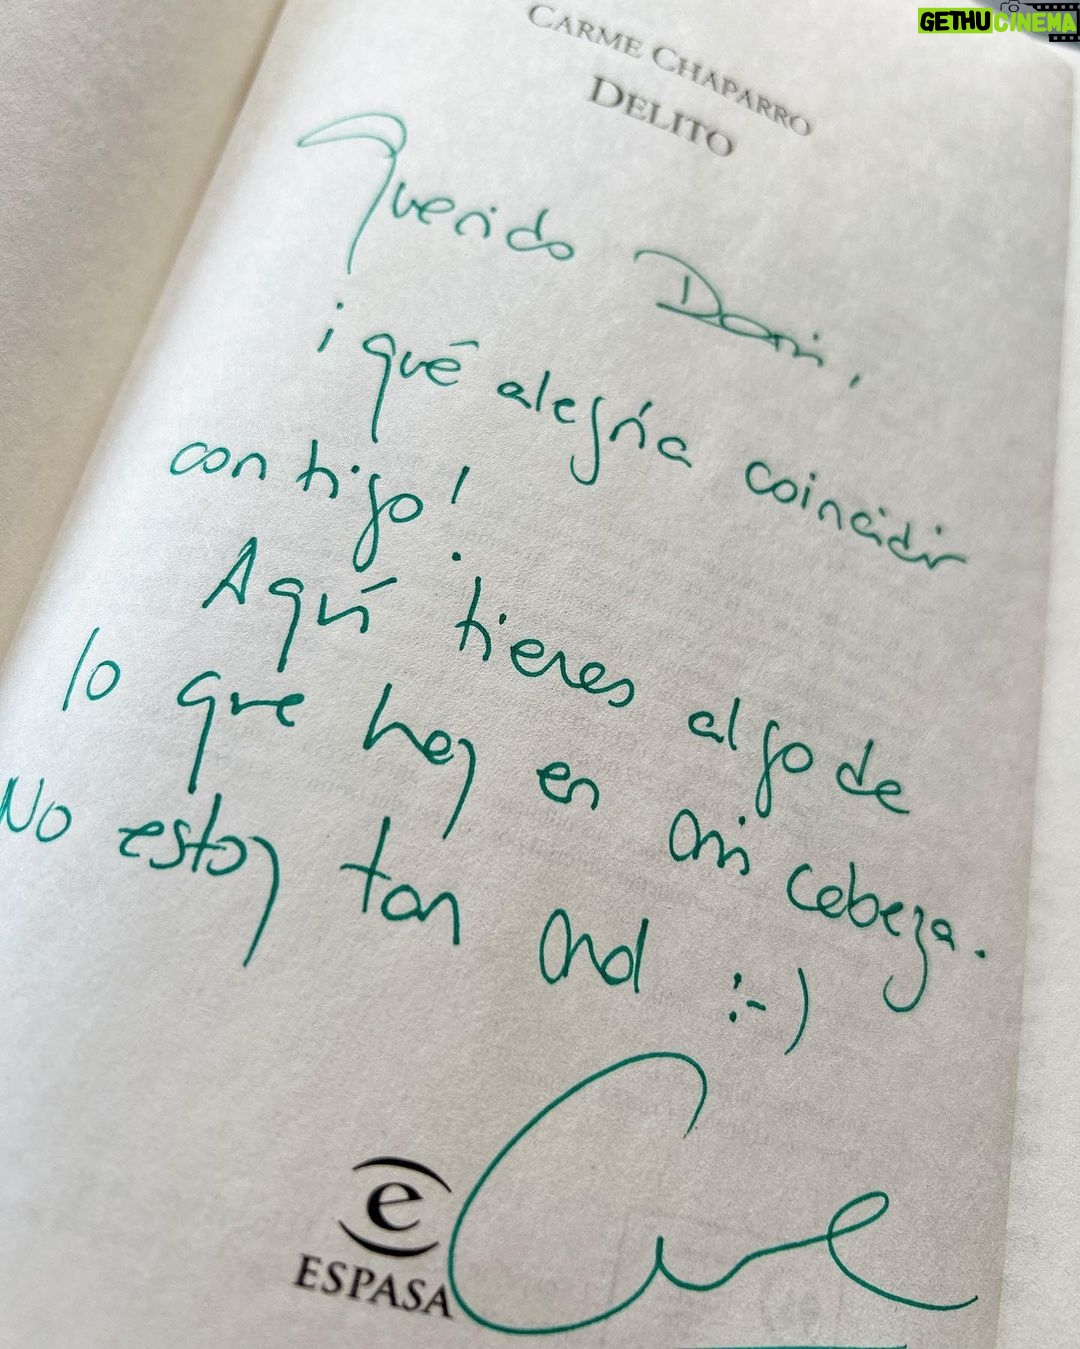 GETHUCINEMA
CARME CHAPARRO
DELITO
Querido Dani,
¡qué alegría coincidir
contigo!
Aquí tienes algo de
lo que hay en mi cabeza.
No estoy tan mal :-)
Carme
e
ESPASA